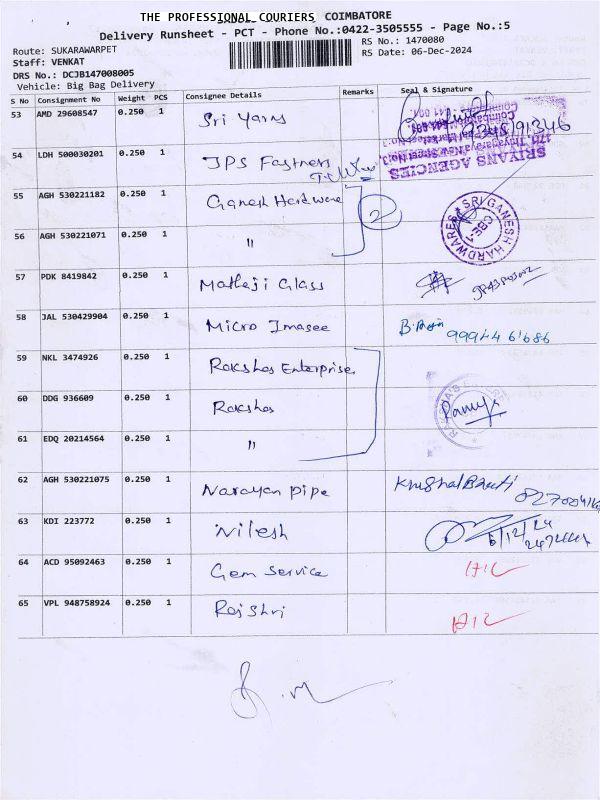 THE PROFESSIONAL COURIERS COIMBATORE
Delivery Runsheet - PCT - Phone No.:0422-3505555 - Page No.:5
Route: SUKARAWARPET
RS No.: 1470080
Staff: VENKAT
RS Date: 06-Dec-2024
DRS No.: DCJB147008005
Vehicle: Big Bag Delivery
S No Consignment No Weight PCS Consignee Details Remarks Seal & Signature
53 AMD 29608547 0.250 1 Sri Yarns
SRIYANS AGENCIES
54 LDH 500030201 0.250 1 JPS Fastners
55 AGH 530221182 0.250 1 Ganesh Hardware 2
SRI GANESH HARDWARES
56 AGH 530221071 0.250 1 "
57 PDK 8419842 0.250 1 Matheji Glass
58 JAL 530429904 0.250 1 Micro Imasee
59 NKL 3474926 0.250 1 Rakshas Enterprises
60 DDG 936609 0.250 1 Rakshas Ramya
61 EDQ 20214564 0.250 1 "
62 AGH 530221075 0.250 1 Narayan pipe
63 KDI 223772 0.250 1 Nilesh 6/12/24
64 ACD 95092463 0.250 1 Gem Service
65 VPL 948758924 0.250 1 Rajshri